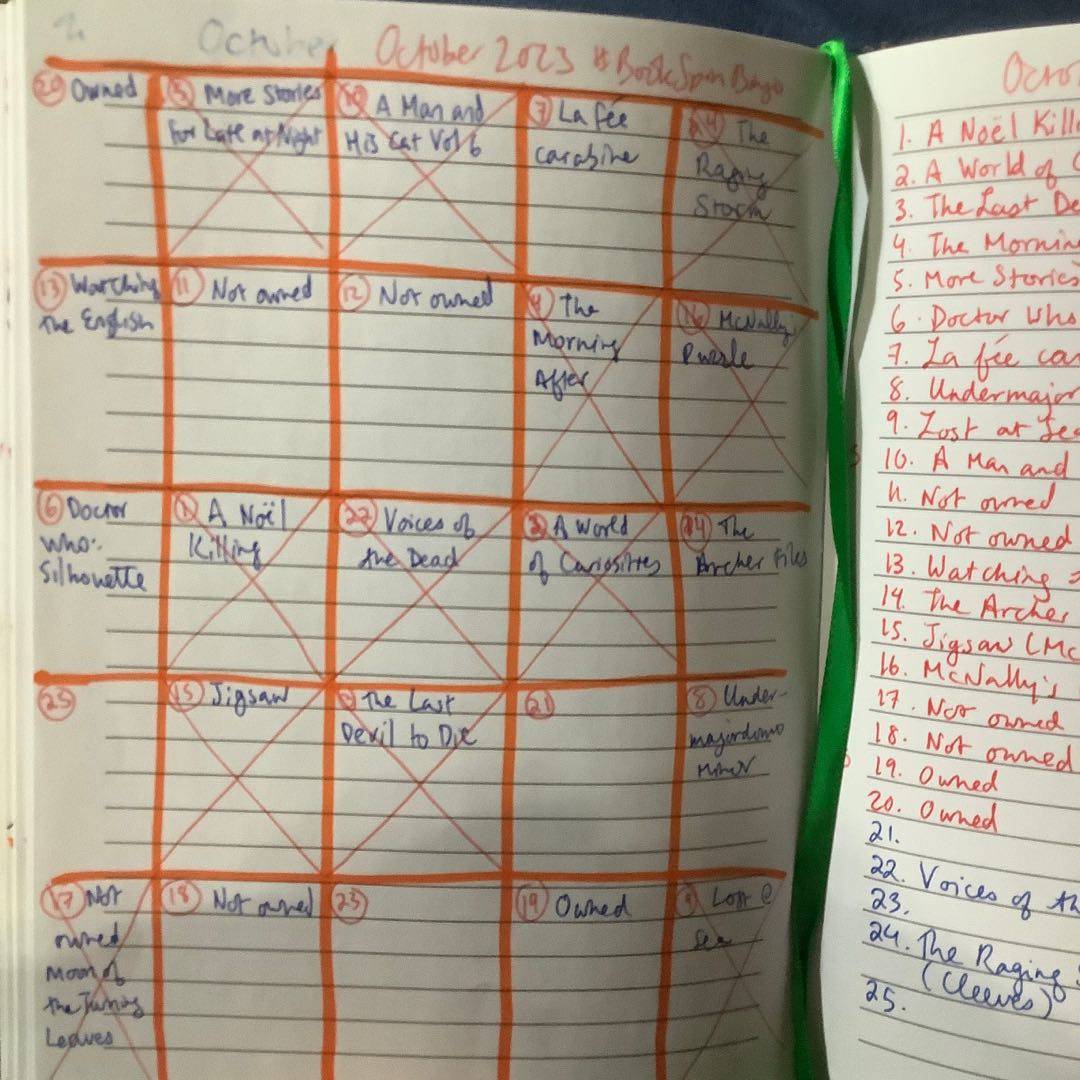 October October 2023 #BookSpinBingo
20 Owned
5 More Stories
For Late at Night
10 A Man and
His Cat Vol 6
7 La fée
carabine
24 The
Raging
Storm
13 Watching
the English
11 Not owned
12 Not owned
4 The
Morning
After
16 McNally
Puzzle
6 Doctor
Who:
Silhouette
1 A Noël
Killing
22 Voices of
the Dead
2 A World
of Curiosities
14 The
Archer Files
25
15 Jigsaw
3 The Last
Devil to Die
21
8 Under-
majordomo
Minor
17 Not
owned
Moon of
the Turning
Leaves
18 Not owned
23
19 Owned
9 Lost @
Sea
Octo
1. A Noël Kill
2. A World of
3. The Last De
4. The Morning
5. More Stories
6. Doctor Who
7. La fée car
8. Undermajor
9. Lost at Se
10. A Man and
11. Not owned
12. Not owned
13. Watching
14. The Archer
15. Jigsaw (Mc
16. McNally's
17. Not owned
18. Not owned
19. Owned
20. Owned
21.
22. Voices of th
23.
24. The Raging
(Cleeves)
25.